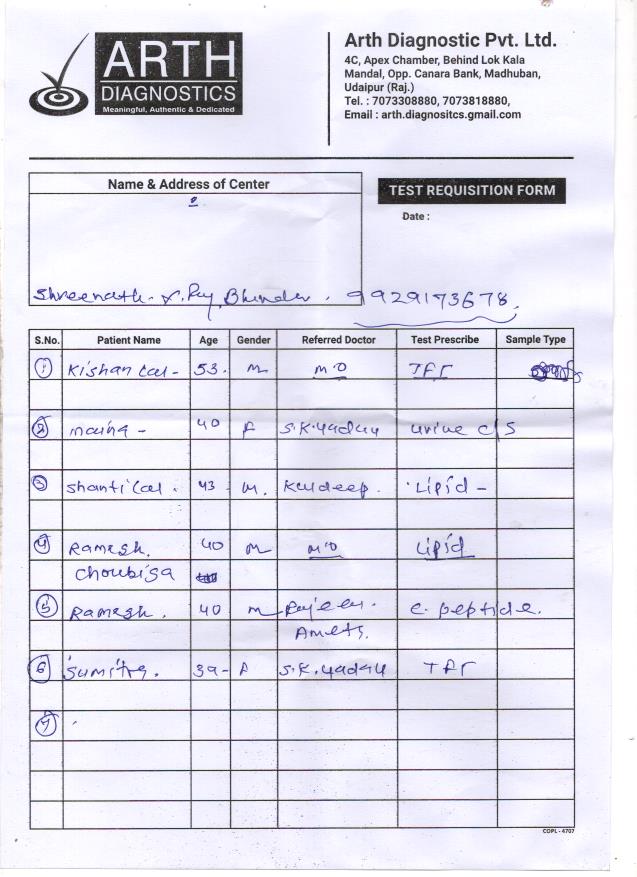 ARTH
DIAGNOSTICS
Meaningful, Authentic & Dedicated
Arth Diagnostic Pvt. Ltd.
4C, Apex Chamber, Behind Lok Kala
Mandal, Opp. Canara Bank, Madhuban,
Udaipur (Raj.)
Tel. : 7073308880, 7073818880,
Email : arth.diagnositcs.gmail.com
Name & Address of Center
TEST REQUISITION FORM
Date :
Shreenath Bhinder. 9929173678.
S.No. Patient Name Age Gender Referred Doctor Test Prescribe Sample Type
1 Kishan Lal - 53. M MO
2 maina - 40 F S.K.yadav urine c/s
3 Shantilal. 43 M. Kuldeep. Lipid -
4 Ramesh. 40 M MO Lipid
Choubisa
5 Ramesh. 40 M c. peptide.
6 Sumitra. 39 - F S.K.yadav
7
COPL - 4707